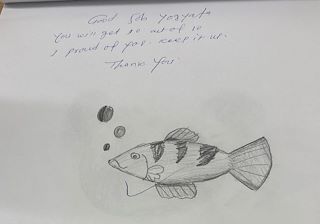 Good Job Yogyata
You will get 10 out of 10
I proud of you. keep it up.
Thank You